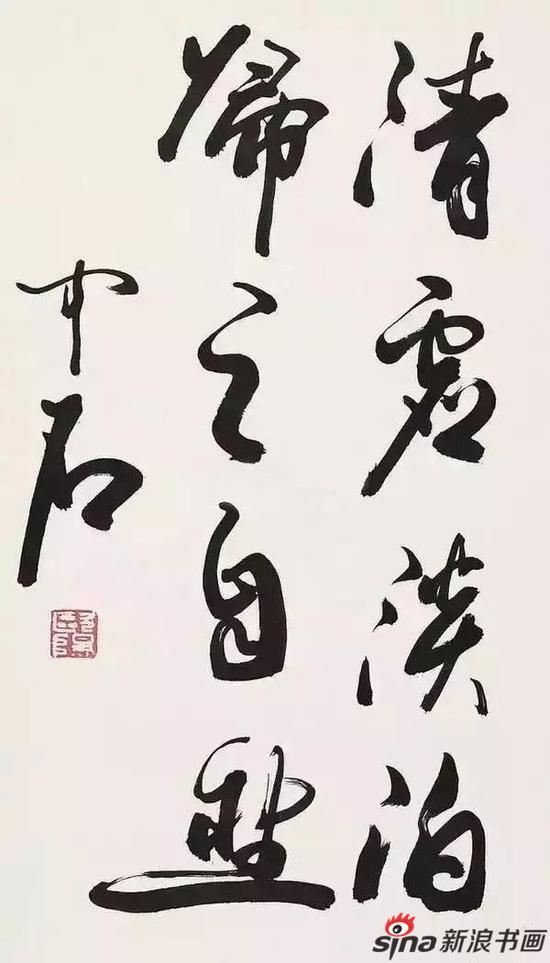 清虚淡泊
歸之自然
中石
sina新浪书画